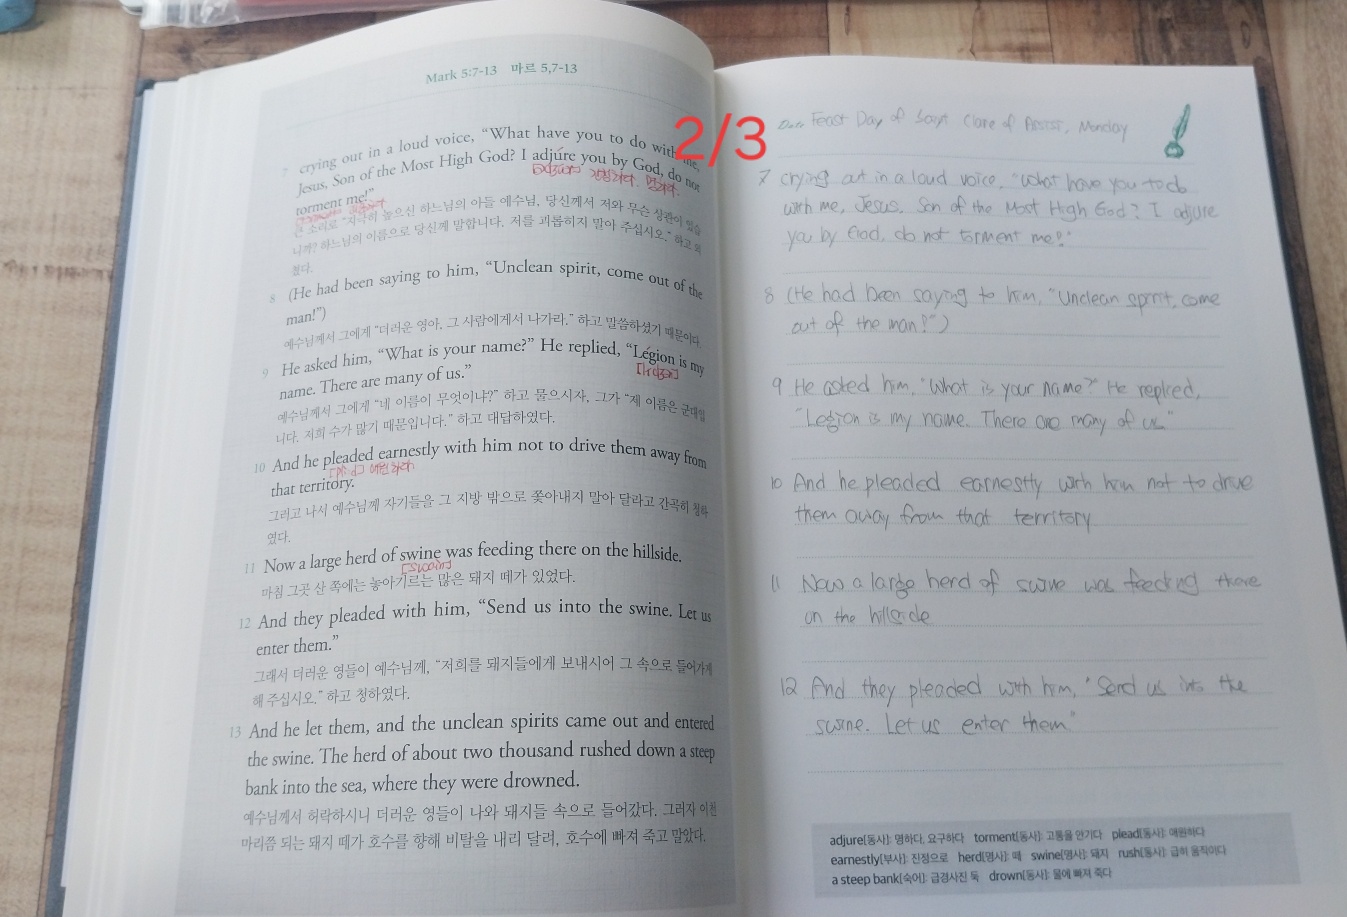 Mark 5:7-13 마르 5,7-13
7 crying out in a loud voice, "What have you to do with me,
Jesus, Son of the Most High God? I adjúre you by God, do not
torment me!"
큰 소리로 "지극히 높으신 하느님의 아들 예수님, 당신께서 저와 무슨 상관이 있습
니까? 하느님의 이름으로 당신께 말합니다. 저를 괴롭히지 말아 주십시오." 하고 외
쳤다.
8 (He had been saying to him, "Unclean spirit, come out of the
man!")
예수님께서 그에게 "더러운 영아, 그 사람에게서 나가라." 하고 말씀하셨기 때문이다.
9 He asked him, "What is your name?" He replied, "Légion is my
name. There are many of us."
예수님께서 그에게 "네 이름이 무엇이냐?" 하고 물으시자, 그가 "제 이름은 군대입
니다. 저희 수가 많기 때문입니다." 하고 대답하였다.
10 And he pleaded earnestly with him not to drive them away from
애원하다
that territory.
그리고 나서 예수님께 자기들을 그 지방 밖으로 쫓아내지 말아 달라고 간곡히 청하
였다.
11 Now a large herd of swine was feeding there on the hillside.
[swain]
마침 그곳 산 쪽에는 놓아기르는 많은 돼지 떼가 있었다.
12 And they pleaded with him, "Send us into the swine. Let us
enter them."
그래서 더러운 영들이 예수님께, "저희를 돼지들에게 보내시어 그 속으로 들어가게
해 주십시오." 하고 청하였다.
13 And he let them, and the unclean spirits came out and entered
the swine. The herd of about two thousand rushed down a steep
bank into the sea, where they were drowned.
예수님께서 허락하시니 더러운 영들이 나와 돼지들 속으로 들어갔다. 그러자 이천
마리쯤 되는 돼지 떼가 호수를 향해 비탈을 내리 달려, 호수에 빠져 죽고 말았다.
2/3
Date Feast Day of Saint Clare of Assisi, Monday
7 crying out in a loud voice, "What have you to do
with me, Jesus, Son of the Most High God? I adjure
you by God, do not torment me!"
8 (He had been saying to him, "Unclean spirit, come
out of the man!")
9 He asked him, "What is your name?" He replied,
"Legion is my name. There are many of us"
10 And he pleaded earnestly with him not to drive
them away from that territory
11 Now a large herd of swine was feeding there
on the hillside
12 And they pleaded with him, "Send us into the
swine. Let us enter them"
adjure[동사]: 명하다, 요구하다 torment[동사]: 고통을 안기다 plead[동사]: 애원하다
earnestly[부사]: 진정으로 herd[명사]: 떼 swine[명사]: 돼지 rush[동사]: 급히 움직이다
a steep bank[숙어]: 급경사진 둑 drown[동사]: 물에 빠져 죽다